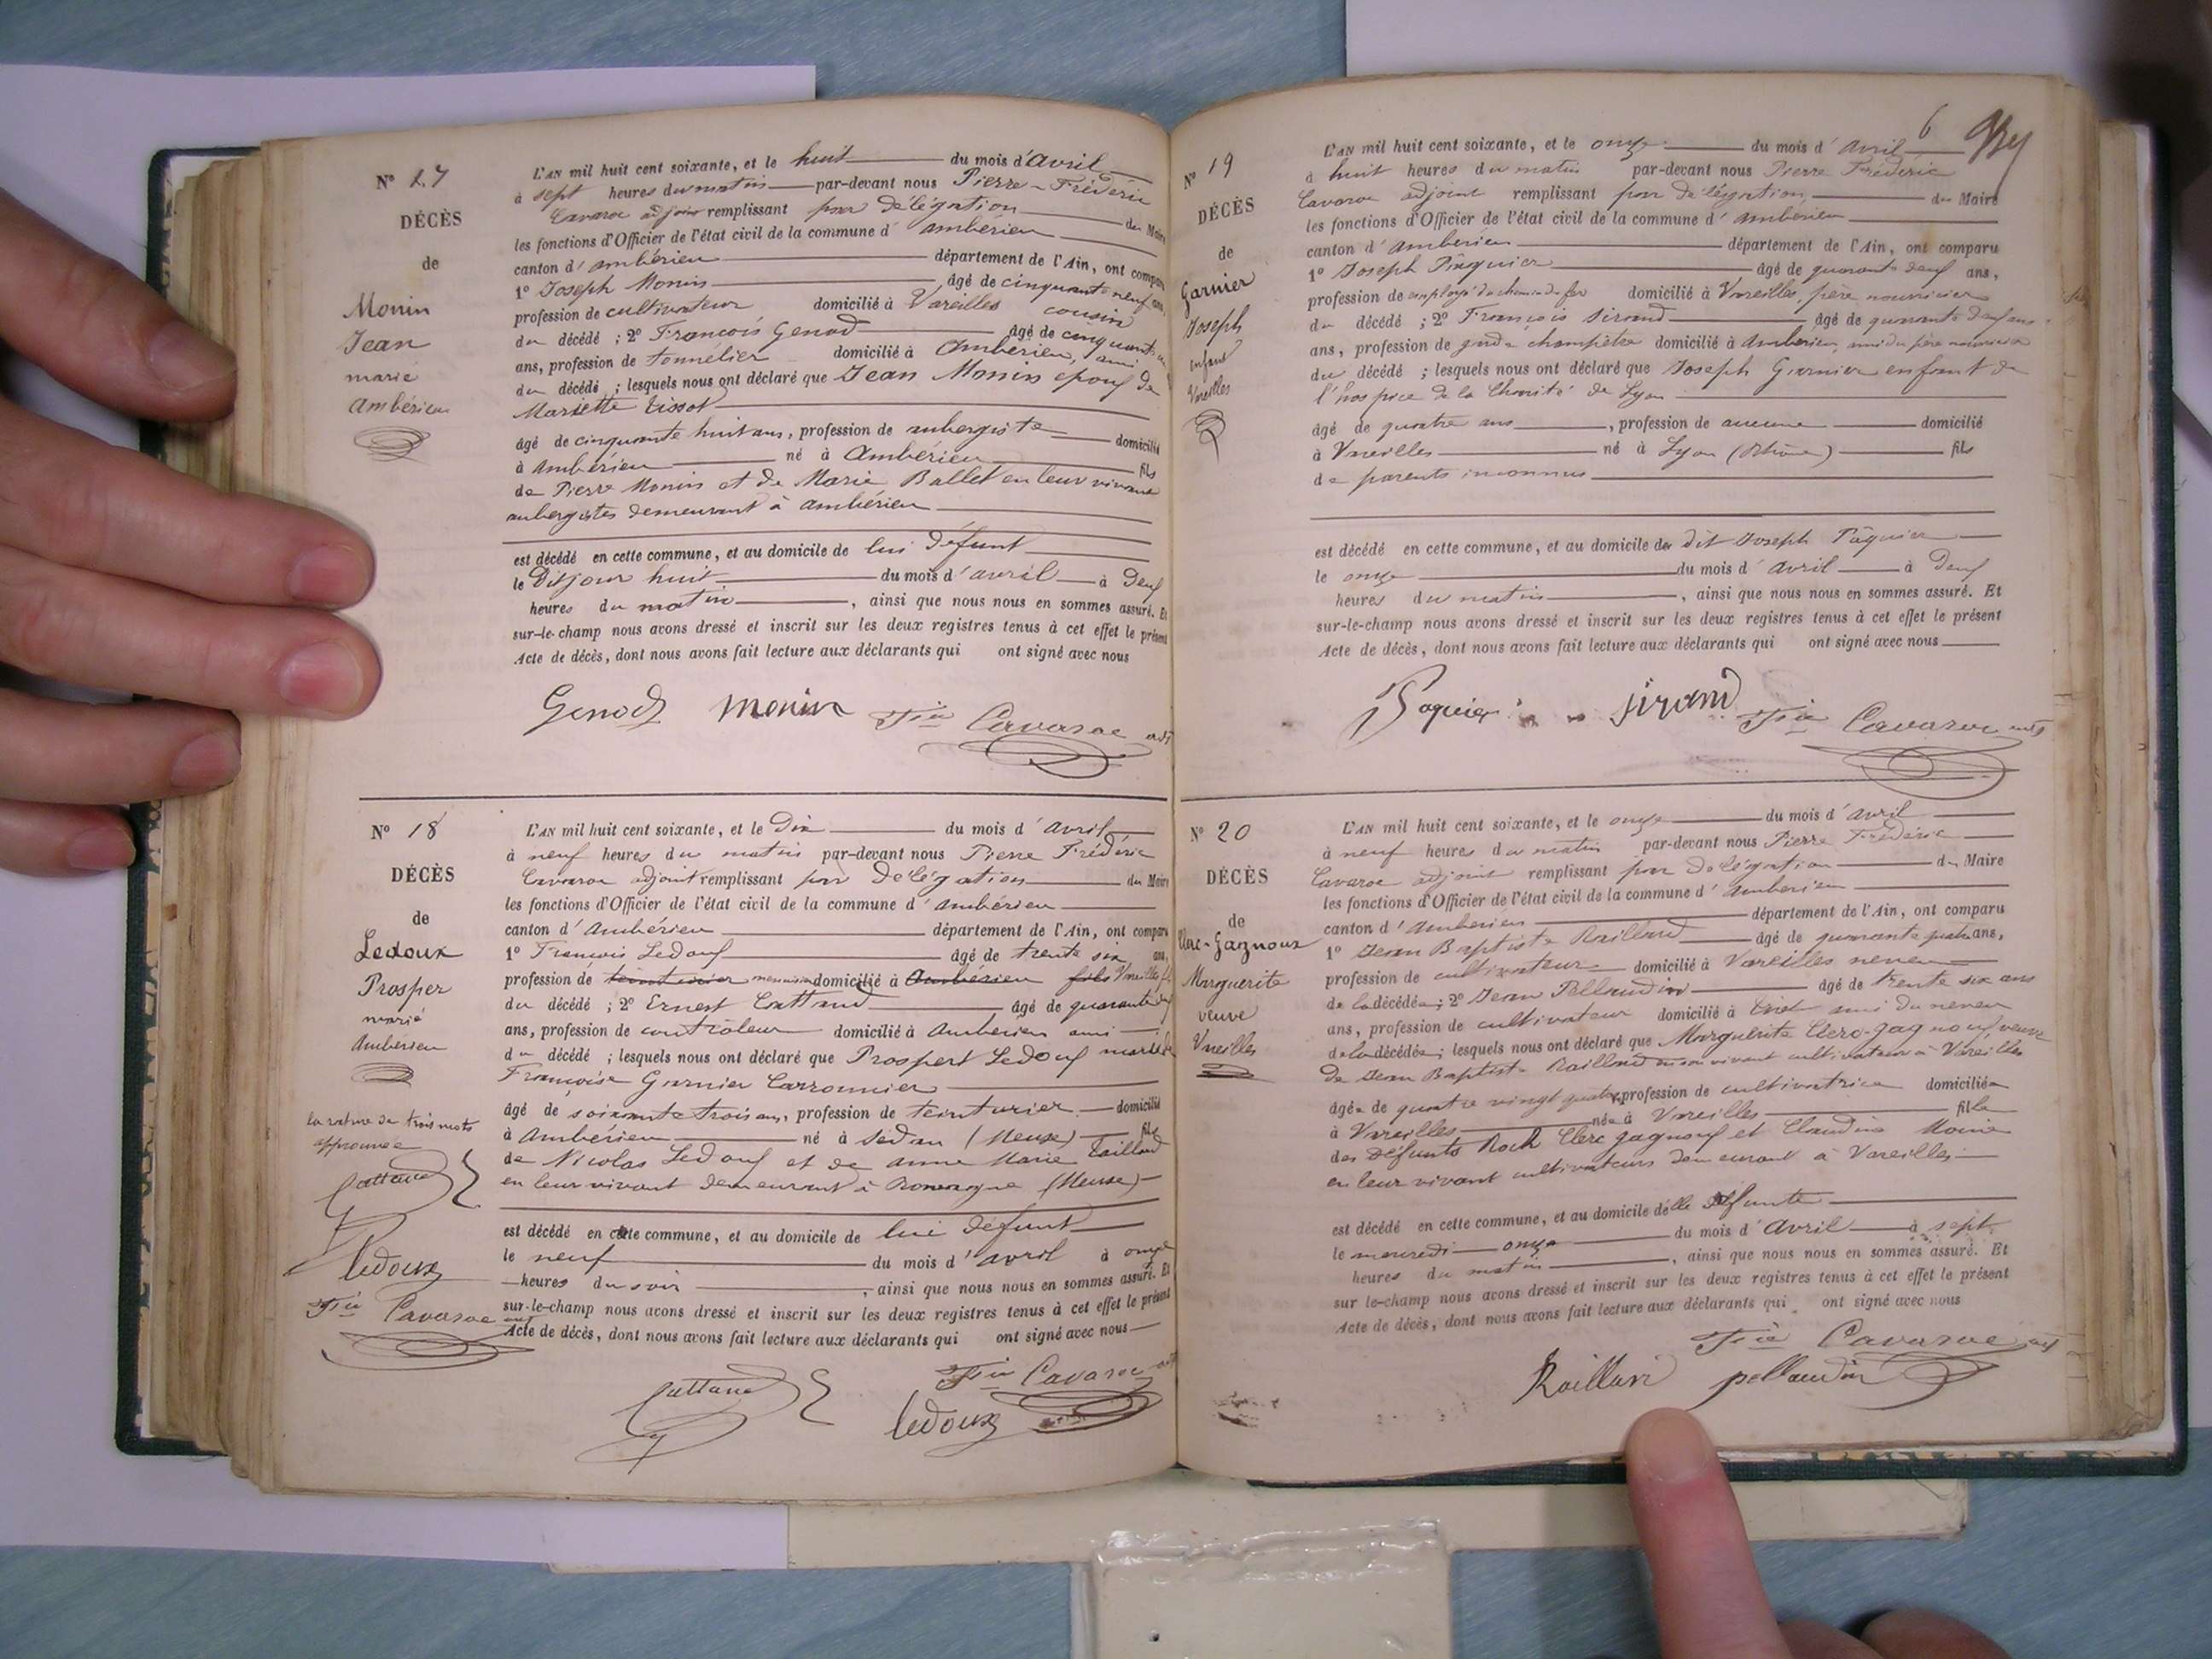 N° 17
DÉCÈS
de
Monin
Jean
marié
Ambérieu
L'AN mil huit cent soixante, et le huit du mois d'Avril
à sept heures du matin par-devant nous Pierre-Frédéric
Cavaroc adjoint remplissant par délégation du Maire
les fonctions d'Officier de l'état civil de la commune d'ambérieu
canton d'ambérieu département de l'Ain, ont comparu
1° Joseph Monin âgé de cinquante neuf ans,
profession de cultivateur domicilié à Vareilles cousin
du décédé ; 2° François Genod âgé de cinquante
ans, profession de tonnélier domicilié à Ambérieu, ami
du décédé ; lesquels nous ont déclaré que Jean Monin époux de
Mariette Tissot
âgé de cinquante huit ans, profession de aubergiste domicilié
à Ambérieu né à Ambérieu fils
de Pierre Monin et de Marie Ballet en leur vivant
aubergistes demeurant à ambérieu
est décédé en cette commune, et au domicile de lui défunt
le Dit jour huit du mois d'avril à Deux
heures du matin, ainsi que nous nous en sommes assuré. Et
sur-le-champ nous avons dressé et inscrit sur les deux registres tenus à cet effet le présent
Acte de décès, dont nous avons fait lecture aux déclarants qui ont signé avec nous
Genod Monin Fric Cavaroc adj
N° 18
DÉCÈS
de
Ledoux
Prosper
marié
Ambérieu
la rature de trois mots
approuvée
Cattand
Ledoux
Fric Cavaroc
L'AN mil huit cent soixante, et le Dix du mois d'avril
à neuf heures du matin par-devant nous Pierre Frédéric
Cavaroc adjoint remplissant par délégation du Maire
les fonctions d'Officier de l'état civil de la commune d'ambérieu
canton d'Ambérieu département de l'Ain, ont comparu
1° François Ledoux âgé de trente six ans,
profession de teinturier menuisier domicilié à Ambérieu fils Vareilles fils
du décédé ; 2° Ernest Cattand âgé de quarante
ans, profession de contrôleur domicilié à Ambérieu ami
du décédé ; lesquels nous ont déclaré que Prospert Ledoux marié de
Françoise Garnier Carronnier
âgé de soixante trois ans, profession de teinturier domicilié
à Ambérieu né à Sedan (Meuse) fils
de Nicolas Ledoux et de anne Marie Taillard
en leur vivant demeurant à Romagne (Meuse)
est décédé en cette commune, et au domicile de lui défunt
le neuf du mois d'avril à onze
heures du soir, ainsi que nous nous en sommes assuré. Et
sur-le-champ nous avons dressé et inscrit sur les deux registres tenus à cet effet le présent
Acte de décès, dont nous avons fait lecture aux déclarants qui ont signé avec nous
Cattand Fric Cavaroc
Ledoux
6
N° 19
DÉCÈS
de
Garnier
Joseph
enfant
Vareilles
L'AN mil huit cent soixante, et le onze du mois d'avril
à huit heures du matin par-devant nous Pierre Frédéric
Cavaroc adjoint remplissant par délégation du Maire
les fonctions d'Officier de l'état civil de la commune d'ambérieu
canton d'ambérieu département de l'Ain, ont comparu
1° Joseph Pâquier âgé de quarante deux ans,
profession de employé du chemin de fer domicilié à Vareilles, père nourricier
du décédé ; 2° François Sirand âgé de quarante deux ans
ans, profession de garde champêtre domicilié à Ambérieu, ami du père nourricier
du décédé ; lesquels nous ont déclaré que Joseph Garnier enfant de
l'hospice de la Charité de Lyon
âgé de quatre ans, profession de aucune domicilié
à Vareilles né à Lyon (Rhône) fils
de parents inconnus
est décédé en cette commune, et au domicile du dit Joseph Pâquier
le onze du mois d'avril à Deux
heures du matin, ainsi que nous nous en sommes assuré. Et
sur-le-champ nous avons dressé et inscrit sur les deux registres tenus à cet effet le présent
Acte de décès, dont nous avons fait lecture aux déclarants qui ont signé avec nous
Paquier Sirand Fric Cavaroc
N° 20
DÉCÈS
de
Clerc-Gagnoux
Marguerite
veuve
Vareilles
L'AN mil huit cent soixante, et le onze du mois d'avril
à neuf heures du matin par-devant nous Pierre Frédéric
Cavaroc adjoint remplissant par délégation du Maire
les fonctions d'Officier de l'état civil de la commune d'Ambérieu
canton d'Ambérieu département de l'Ain, ont comparu
1° Jean Baptiste Raillard âgé de quarante quatre ans,
profession de cultivateur domicilié à Vareilles neveu
de la décédée ; 2° Jean Pellaudin âgé de trente six ans
ans, profession de cultivateur domicilié à ami du neveu
de la décédée ; lesquels nous ont déclaré que Marguerite Clerc-gagnoux veuve
de Jean Baptiste Raillard en son vivant cultivateur à Vareilles
âgée de quatre vingt quatre, profession de cultivatrice domiciliée
à Vareilles née à Vareilles fille
des défunts Roch Clerc gagnoux et Claudine Monin
en leur vivant cultivateurs demeurant à Vareilles
est décédé en cette commune, et au domicile d'elle défunte
le mercredi onze du mois d'avril à sept
heures du matin, ainsi que nous nous en sommes assuré. Et
sur le-champ nous avons dressé et inscrit sur les deux registres tenus à cet effet le présent
Acte de décès, dont nous avons fait lecture aux déclarants qui ont signé avec nous
Fric Cavaroc adj
Raillard pellaudin